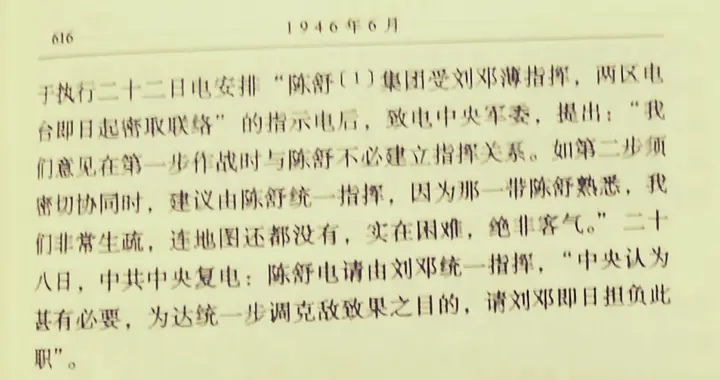 616
1946年6月
于执行二十二日电安排“陈舒(1)集团受刘邓薄指挥，两区电
台即日起密取联络”的指示电后，致电中央军委，提出：“我
们意见在第一步作战时与陈舒不必建立指挥关系。如第二步须
密切协同时，建议由陈舒统一指挥，因为那一带陈舒熟悉，我
们非常生疏，连地图还都没有，实在困难，绝非客气。”二十
八日，中共中央复电：陈舒电请由刘邓统一指挥，“中央认为
甚有必要，为达统一步调克敌致果之目的，请刘邓即日担负此
职”。